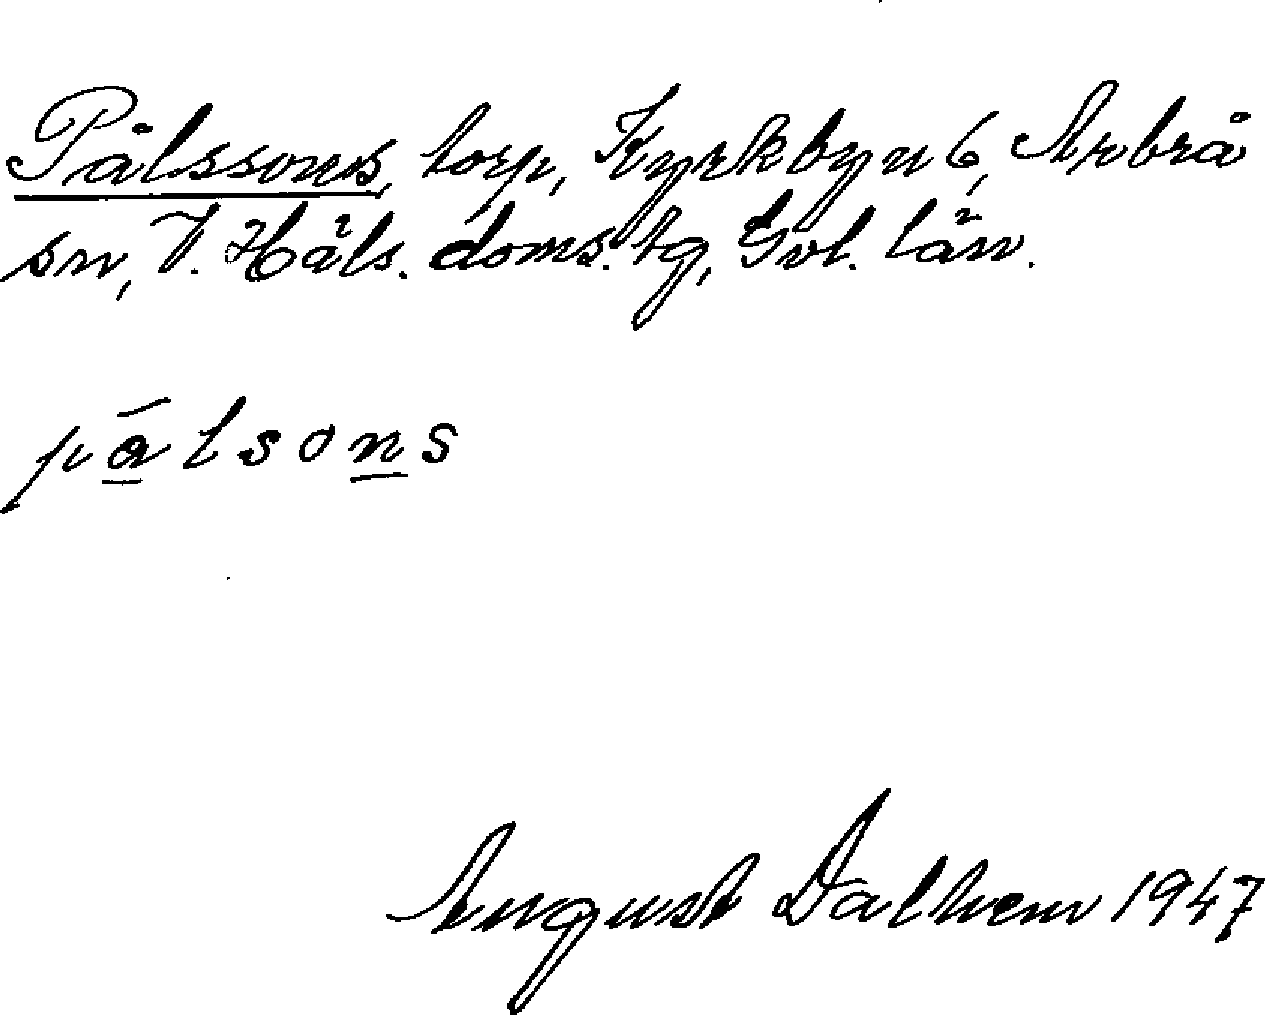 Pålssons, torp, Kyrkbyn 6, Arbrå
sn, V. Häls. doms. tg, Gvl. län.
pålsons
August Dalhem 1947